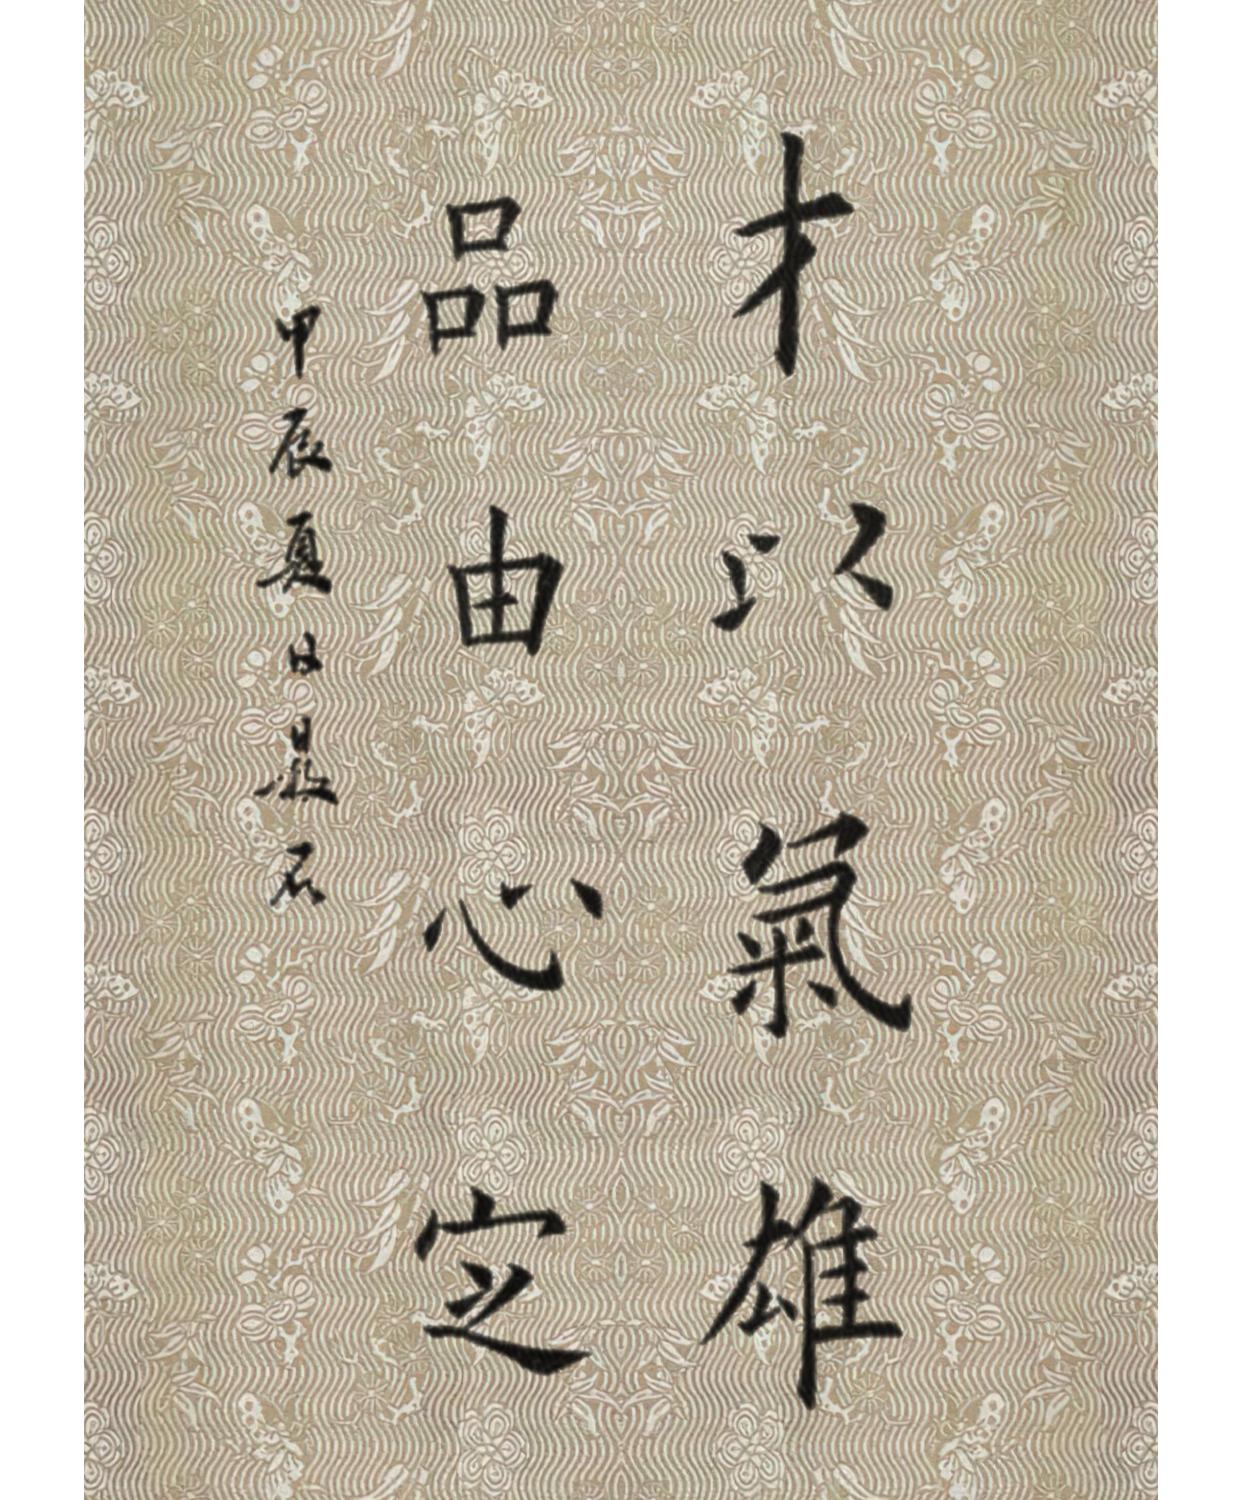 才以氣雄
品由心定
甲辰夏日石